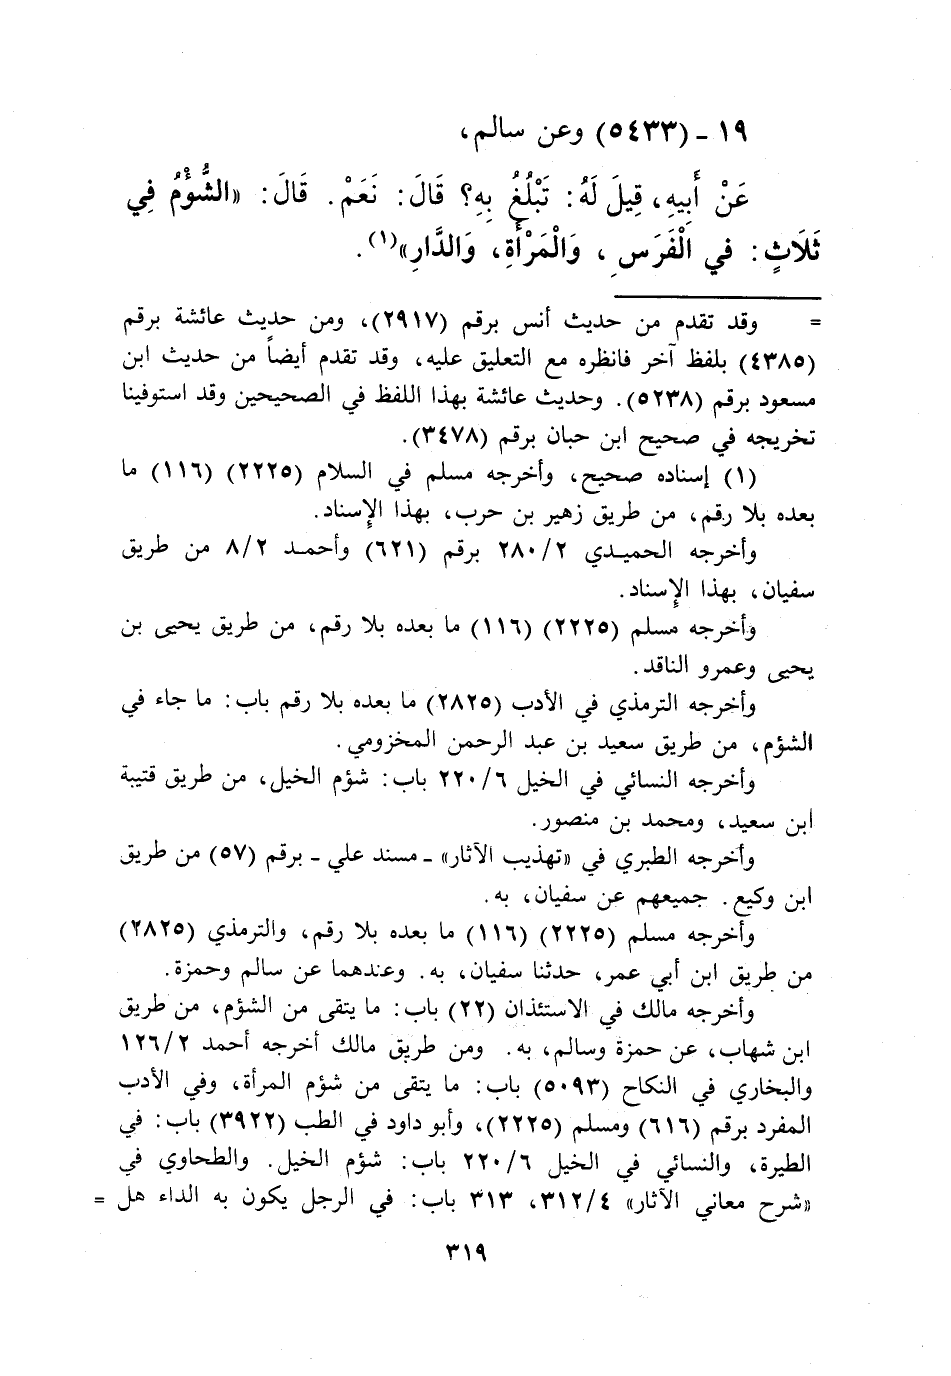 ١٩ - (٥٤٣٣) وعن سالم،
عَنْ أَبِيهِ، قِيلَ لَهُ: تَبْلُغُ بِهِ؟ قَالَ: نَعَمْ. قَالَ: «الشُّؤْمُ فِي
ثَلَاثٍ: في الْفَرَسِ، وَالْمَرْأَةِ، وَالدَّارِ»(١).
= وقد تقدم من حديث أنس برقم (٢٩١٧)، ومن حديث عائشة برقم
(٤٣٨٥) بلفظ آخر فانظره مع التعليق عليه، وقد تقدم أيضاً من حديث ابن
مسعود برقم (٥٢٣٨). وحديث عائشة بهذا اللفظ في الصحيحين وقد استوفينا
تخريجه في صحيح ابن حبان برقم (٣٤٧٨).
(١) إسناده صحيح، وأخرجه مسلم في السلام (٢٢٢٥) (١١٦) ما
بعده بلا رقم، من طريق زهير بن حرب، بهذا الإسناد.
وأخرجه الحميدي ٢/ ٢٨٠ برقم (٦٢١) وأحمد ٨/٢ من طريق
سفيان، بهذا الإسناد.
وأخرجه مسلم (٢٢٢٥) (١١٦) ما بعده بلا رقم، من طريق يحيى بن
يحيى وعمرو الناقد.
وأخرجه الترمذي في الأدب (٢٨٢٥) ما بعده بلا رقم باب: ما جاء في
الشؤم، من طريق سعيد بن عبد الرحمن المخزومي.
وأخرجه النسائي في الخيل ٦/ ٢٢٠ باب: شؤم الخيل، من طريق قتيبة
ابن سعيد، ومحمد بن منصور.
وأخرجه الطبري في «تهذيب الآثار» - مسند علي - برقم (٥٧) من طريق
ابن وكيع. جميعهم عن سفيان، به.
وأخرجه مسلم (٢٢٢٥) (١١٦) ما بعده بلا رقم، والترمذي (٢٨٢٥)
من طريق ابن أبي عمر، حدثنا سفيان، به. وعندهما عن سالم وحمزة.
وأخرجه مالك في الاستئذان (٢٢) باب: ما يتقى من الشؤم، من طريق
ابن شهاب، عن حمزة وسالم، به. ومن طريق مالك أخرجه أحمد ١٢٦/٢
والبخاري في النكاح (٥٠٩٣) باب: ما يتقى من شؤم المرأة، وفي الأدب
المفرد برقم (٦١٦) ومسلم (٢٢٢٥)، وأبو داود في الطب (٣٩٢٢) باب: في
الطيرة، والنسائي في الخيل ٦/ ٢٢٠ باب: شؤم الخيل. والطحاوي في
«شرح معاني الآثار» ٣١٢/٤، ٣١٣ باب: في الرجل يكون به الداء هل =
٣١٩